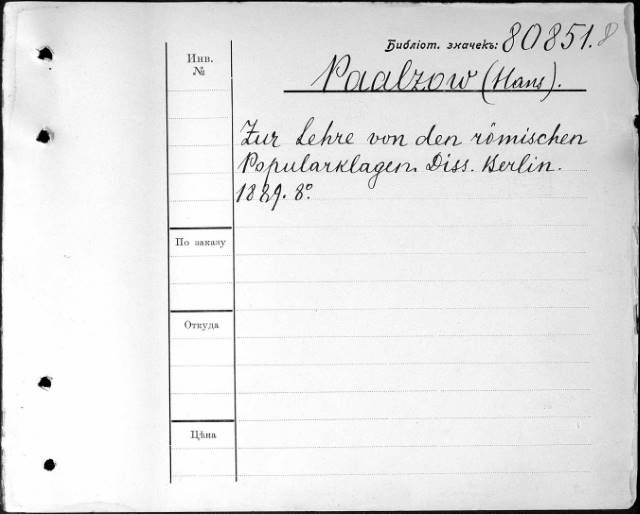 Библіот. значекъ: 80851.8
Инв.
№
Paalzow (Hans).
Zur Lehre von den römischen
Popularklagen. Diss. Berlin.
1889. 8°.
По заказу
Откуда
Цѣна